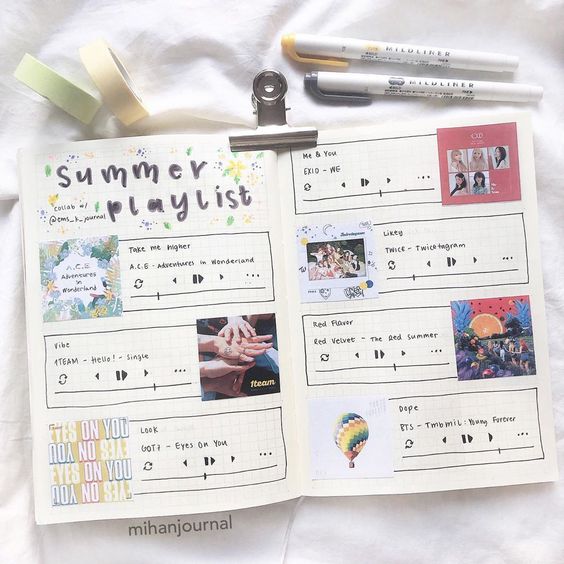 MILDLINER
MILDLINER
summer
playlist
collab w/
@ems_k_journal
Take me higher
A.C.E - Adventures in Wonderland
A.C.E
Adventures
in
Wonderland
Vibe
1TEAM - Hello! - Single
1team
Look
GOT7 - Eyes On You
EYES ON YOU
EYES ON YOU
EYES ON YOU
EYES ON YOU
Me & You
EXID - WE
EXID
Likey
TWICE - Twicetagram
Twicetagram
Red Flavor
Red Velvet - The Red Summer
Dope
BTS - Tmbmil : Young Forever
mihanjournal